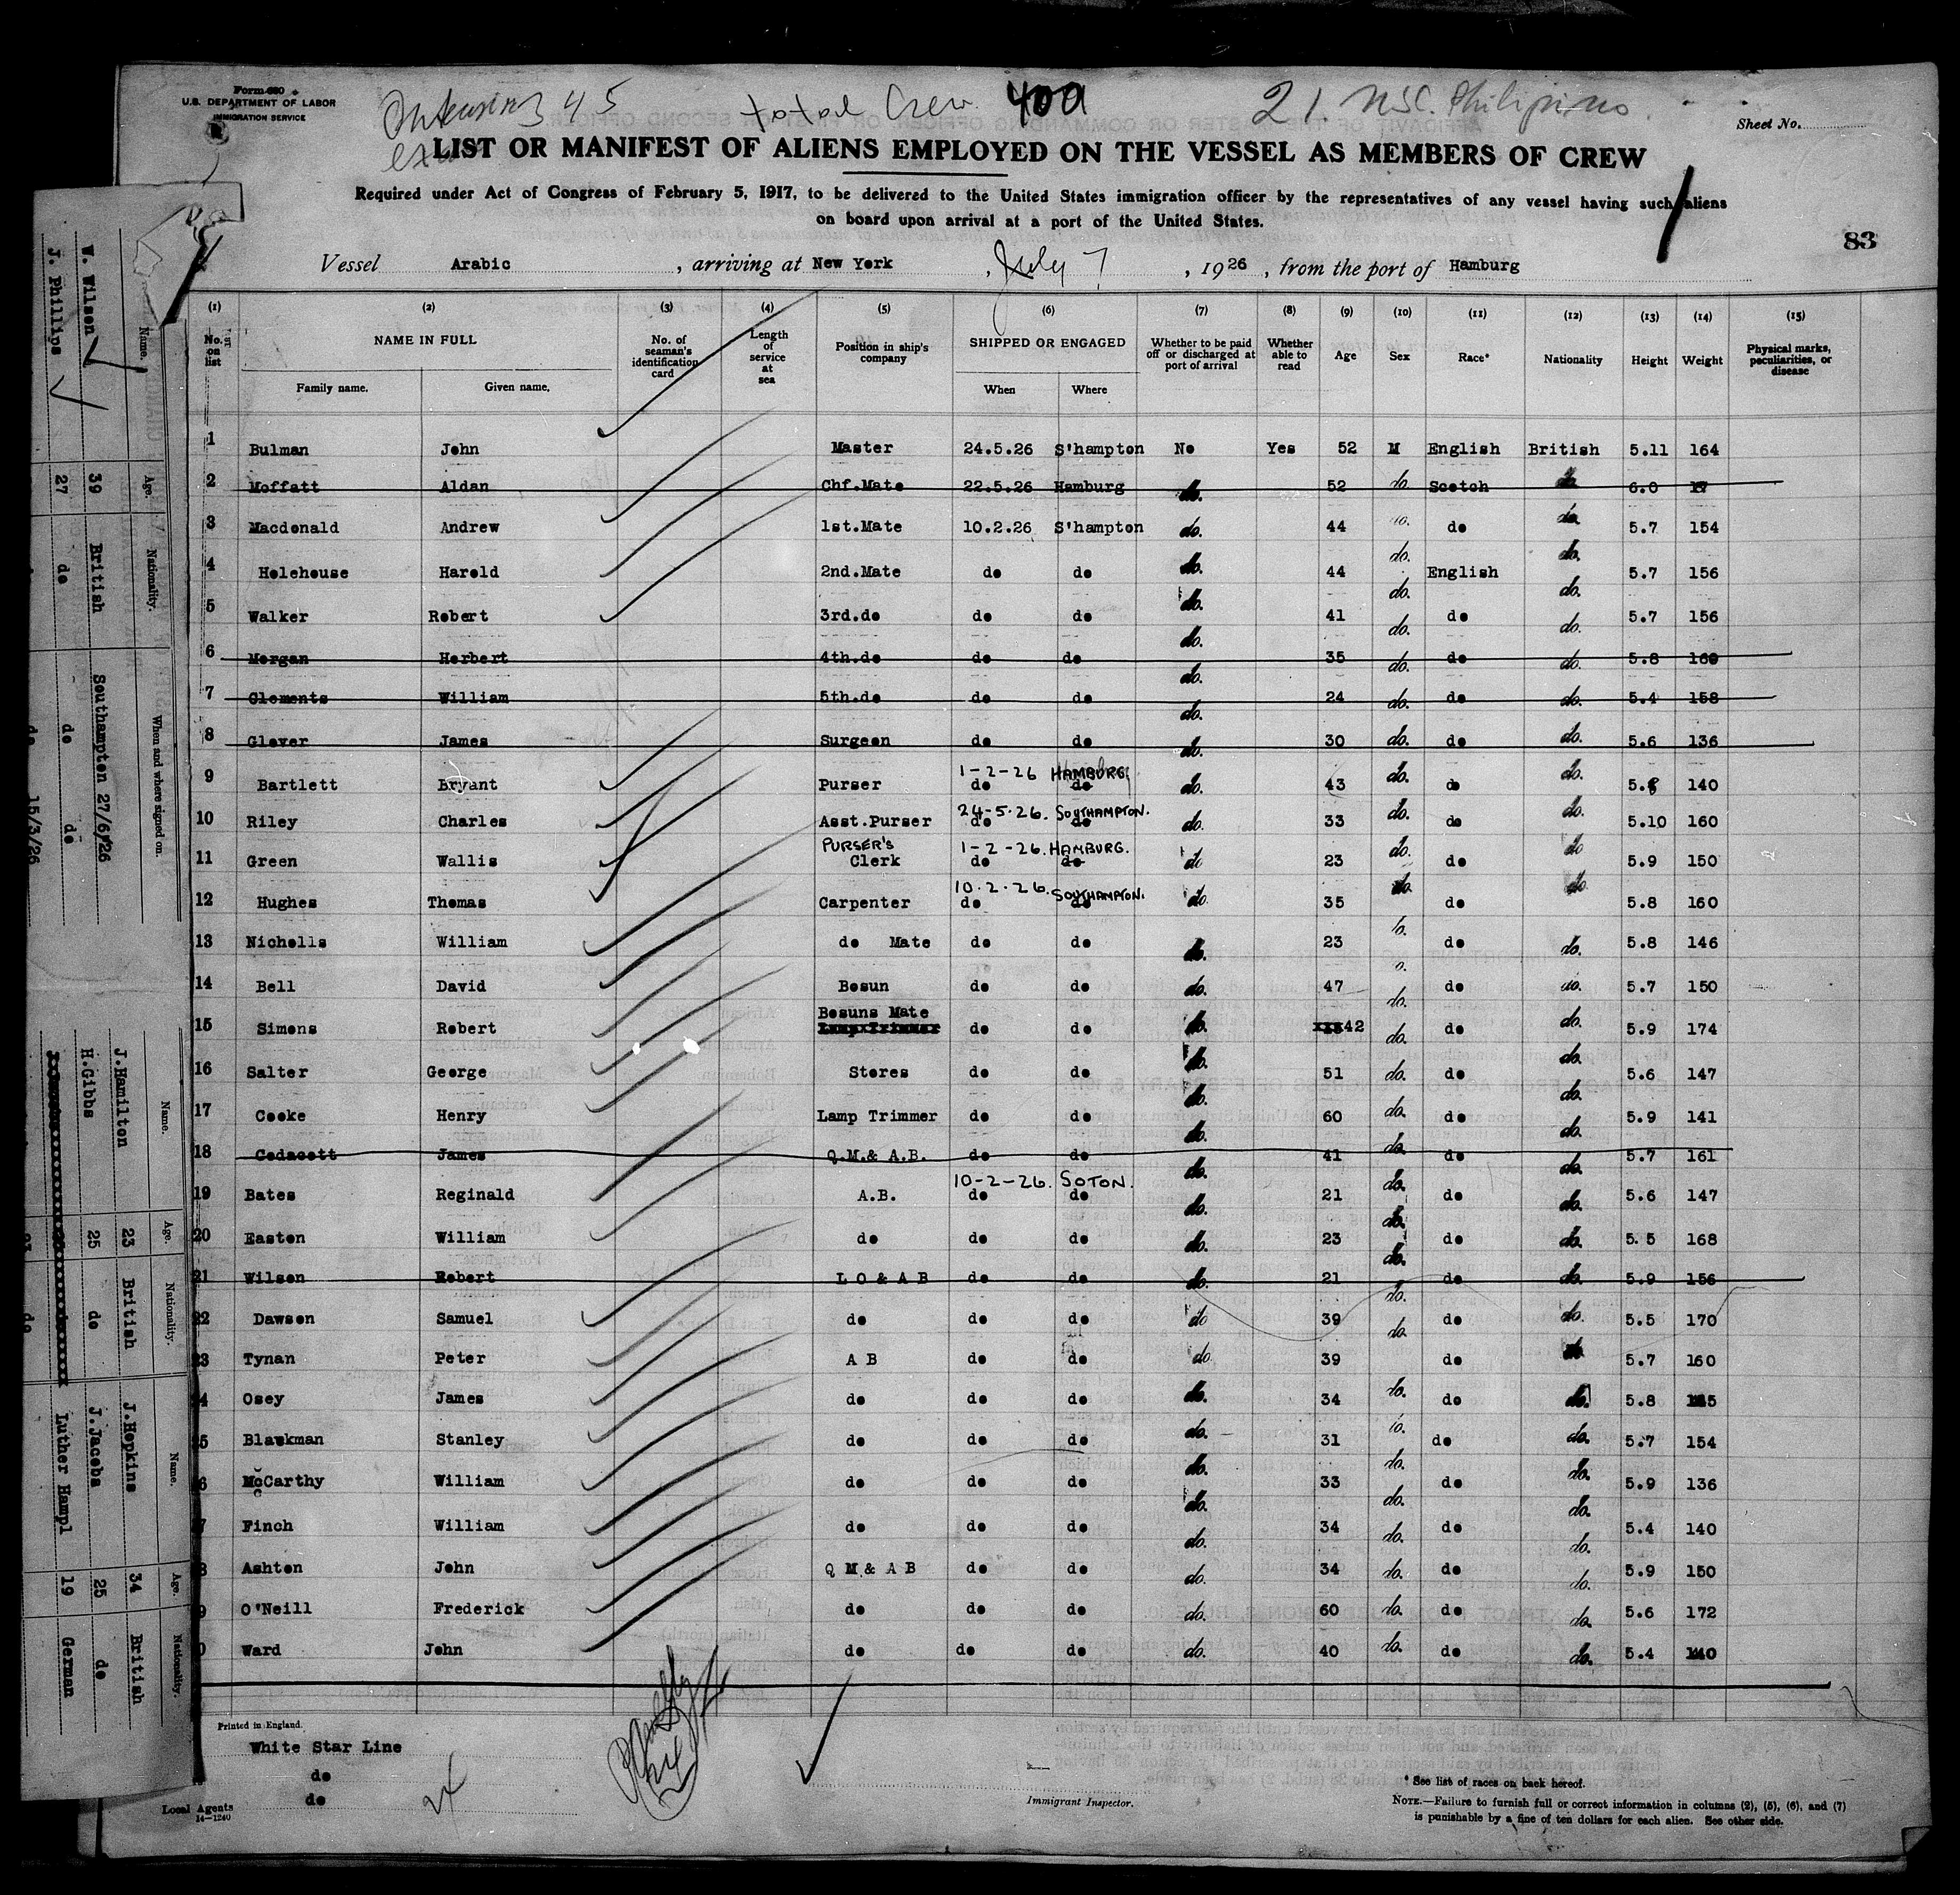 Form 680
U.S. DEPARTMENT OF LABOR
IMMIGRATION SERVICE
345
total Crew 400
21. Philipino
Sheet No.
LIST OR MANIFEST OF ALIENS EMPLOYED ON THE VESSEL AS MEMBERS OF CREW
Required under Act of Congress of February 5, 1917, to be delivered to the United States immigration officer by the representatives of any vessel having such aliens
on board upon arrival at a port of the United States.
83
Vessel Arabic, arriving at New York, July 7, 1926, from the port of Hamburg
(1) (2) (3) (4) (5) (6) (7) (8) (9) (10) (11) (12) (13) (14) (15)
No. on list NAME IN FULL No. of seaman's identification card Length of service at sea Position in ship's company SHIPPED OR ENGAGED Whether to be paid off or discharged at port of arrival Whether able to read Age Sex Race* Nationality Height Weight Physical marks, peculiarities, or disease
Family name. Given name. When Where
1 Bulman John Master 24.5.26 S'hampton No Yes 52 M English British 5.11 164
2 Moffatt Aldan Chf.Mate 22.5.26 Hamburg do. 52 do. Scotch do. 6.0
3 Macdonald Andrew 1st.Mate 10.2.26 S'hampton do. 44 do. do do. 5.7 154
4 Holehouse Harold 2nd.Mate do do do. 44 do. English do. 5.7 156
5 Walker Robert 3rd.do do do do. 41 do. do do. 5.7 156
6 Morgan Herbert 4th.do do do do. 35 do. do do. 5.8 160
7 Clements William 5th.do do do do. 24 do. do do. 5.4 158
8 Glover James Surgeon do do do. 30 do. do do. 5.6 136
9 Bartlett Bryant Purser 1-2-26 HAMBURG. do do do. 43 do. do do. 5.8 140
10 Riley Charles Asst.Purser 24-5-26. SOUTHAMPTON. do do do. 33 do. do do. 5.10 160
11 Green Wallis PURSER'S Clerk 1-2-26. HAMBURG. do do do 23 do. do do 5.9 150
12 Hughes Thomas Carpenter 10.2.26. SOUTHAMPTON. do do do. 35 do. do do. 5.8 160
13 Nicholls William do Mate do do do. 23 do. do do. 5.8 146
14 Bell David Bosun do do do. 47 do. do do. 5.7 150
15 Simons Robert Bosuns Mate Lamp Trimmer do do do. 42 do. do do. 5.9 174
16 Salter George Stores do do do. 51 do. do do. 5.6 147
17 Cooke Henry Lamp Trimmer do do do. 60 do. do do. 5.9 141
18 Cadacott James Q.M.& A.B. do do do. 41 do. do do. 5.7 161
19 Bates Reginald A.B. 10-2-26. SOTON. do do do. 21 do. do do. 5.6 147
20 Easton William do do do do. 23 do. do do. 5.5 168
21 Wilson Robert L O & A B do do do. 21 do. do do. 5.9 156
22 Dawson Samuel do do do do 39 do. do do. 5.5 170
23 Tynan Peter A B do do do. 39 do. do do. 5.7 160
4 Osey James do do do do. 34 do. do do. 5.8
5 Blackman Stanley do do do do. 31 do. do do. 5.7 154
6 McCarthy William do do do do. 33 do. do do. 5.9 136
7 Finch William do do do do. 34 do. do do. 5.4 140
8 Ashton John Q M & A B do do do. 34 do. do do. 5.9 150
9 O'Neill Frederick do do do do. 60 do. do do. 5.6 172
0 Ward John do do do do. 40 do. do do. 5.4 140
Printed in England.
White Star Line
do
do
Local Agents
14-1240
Immigrant Inspector.
* See list of races on back hereof.
NOTE.—Failure to furnish full or correct information in columns (2), (5), (6), and (7)
is punishable by a fine of ten dollars for each alien. See other side.
Name. Age. Nationality. When and where signed on.
W. Wilson 39 British Southampton 27/6/26
J. Phillips 27 do do do
do 15/3/26
Name. Age. Nationality. Name. Age. Nationality.
J.Hamilton 23 British J.Hopkins 34 British
H.Gibbs 25 do J.Jacobs 25 do
Luther Hampl 19 German